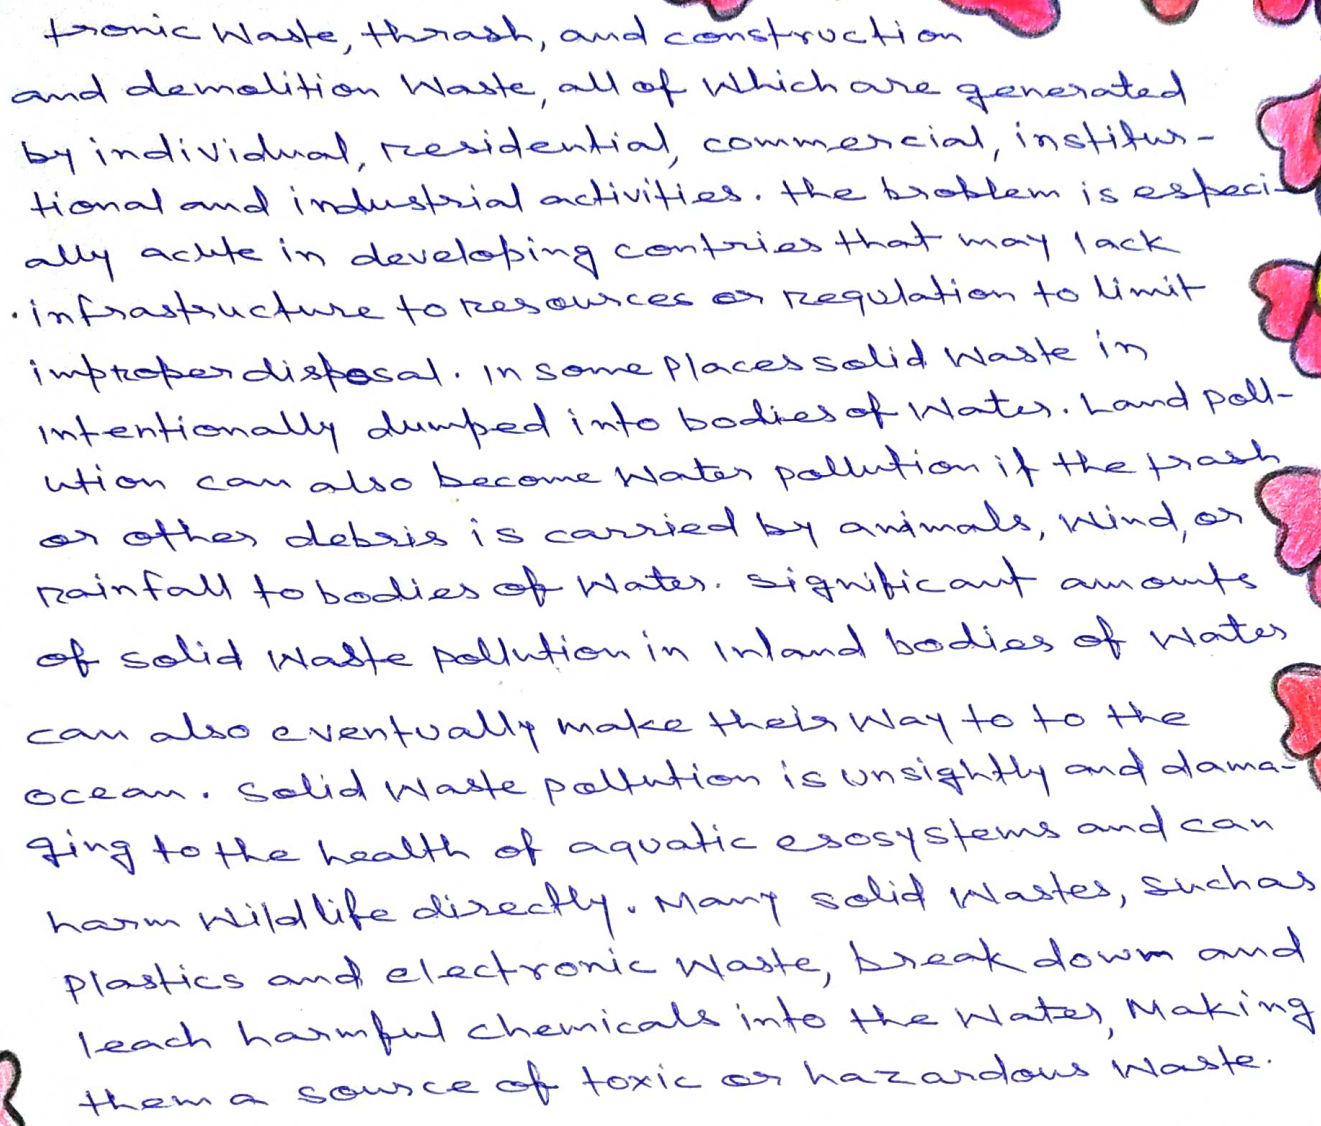 tronic Waste, thrash, and construction
and demolition Waste, all of which are generated
by individual, residential, commercial, institu-
tional and industrial activities. the problem is especi-
ally acute in developing contries that may lack
infrastructure to resources or regulation to limit
improper disposal. In some places solid waste in
intentionally dumped into bodies of Water. Land poll-
ution can also become Water pollution if the trash
or other debris is carried by animals, Wind, or
rainfall to bodies of Water. significant amounts
of solid Waste pollution in Inland bodies of Water
can also eventually make their Way to to the
ocean. Solid Waste pollution is unsightly and dama-
ging to the health of aquatic esosystems and can
harm Wildlife directly. Many solid Wastes, such as
plastics and electronic Waste, break down and
leach harmful chemicals into the Water, Making
them a source of toxic or hazardous Waste.